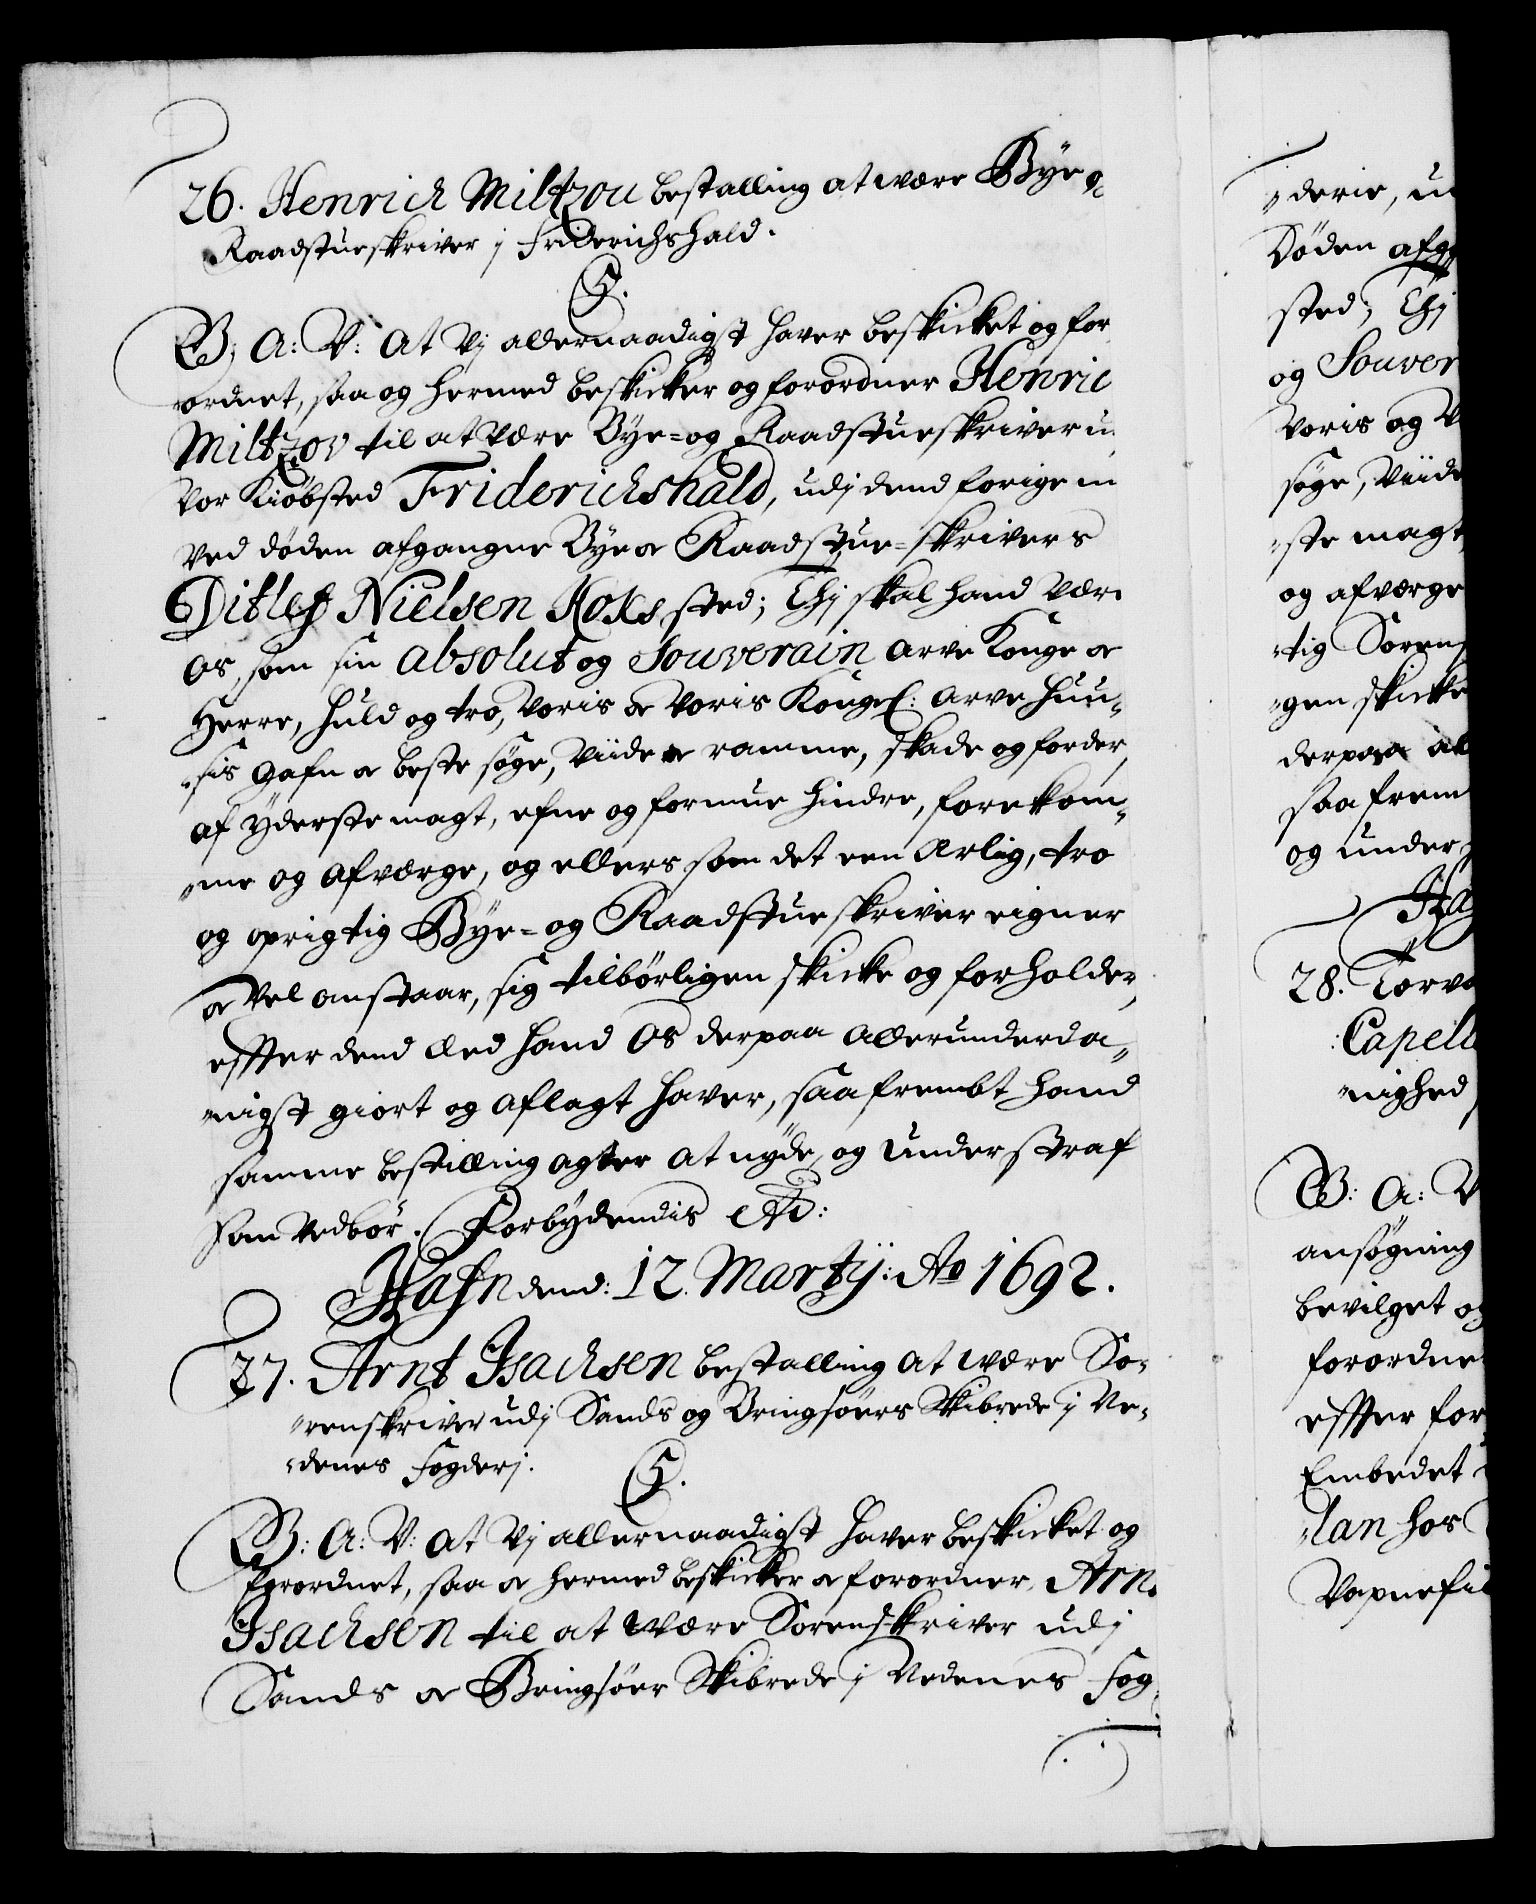 26. Henrich Miltzou bestalling at være Bye og
Raadstueskriver j Friderichshald.
G. 5.
G: A: V: At Vj allernaadigst haver beskicket og for
ordnet, saa og hermed beskicker og forordner Henric
Miltzov til at være Bye- og Raadstueskriver u
vor Kiøbsted Friderichshald, udj dend forige nu
ved døden afgangne Bye & Raadstue-skrivers
Ditlef Nielsen Koks sted; Thj skal hand være
Os, som sin absolut og Souverain Arve Konge &
Herre, huld og tro, voris & voris Kongel: Arve Huu-
sis gafn & beste søge, viide & ramme, skade og forder,
af yderste magt, efne og formue hindre, forekom-
me og afværge, og ellers som det een ærlig, tro
og oprigtig Bye- og Raadstueskriver eigner
& vel anstaar, sig tilbørligen skicke og forholder,
effter dend Eed hand Os derpaa allerunderda-
nigst giort og aflagt haver, saafrembt hand
samme bestilling agter at nyde, og under straf
som vedbør. Forbydendis etc:
Hafn dend: 12. Martij: Ao 1692.
27. Arnt Isachsen bestalling at være So-
renskriver udj Sands og Bringsøers Skibrede j Ne-
denes fogderj.
5.
G: A: V: At Vj allernaadigst haver beskicket og
forordnet, saa & hermed beskicker & forordner, Arn
Isachsen til at være Sorenskriver udj
Sands & Bringsøer Skibrede j Nedenes fog
derie, u
Døden afg
sted; Thj
og Souver
voris og V
søge, viide
ste magt
og afværge
tig Sorens
gen skicke
derpaa al
saa frem
og under
Ha
28. Torv
Capell
nighed
G: A: V
ansøgning
bevilget og
forordne
effter for
Embedet
lan hos